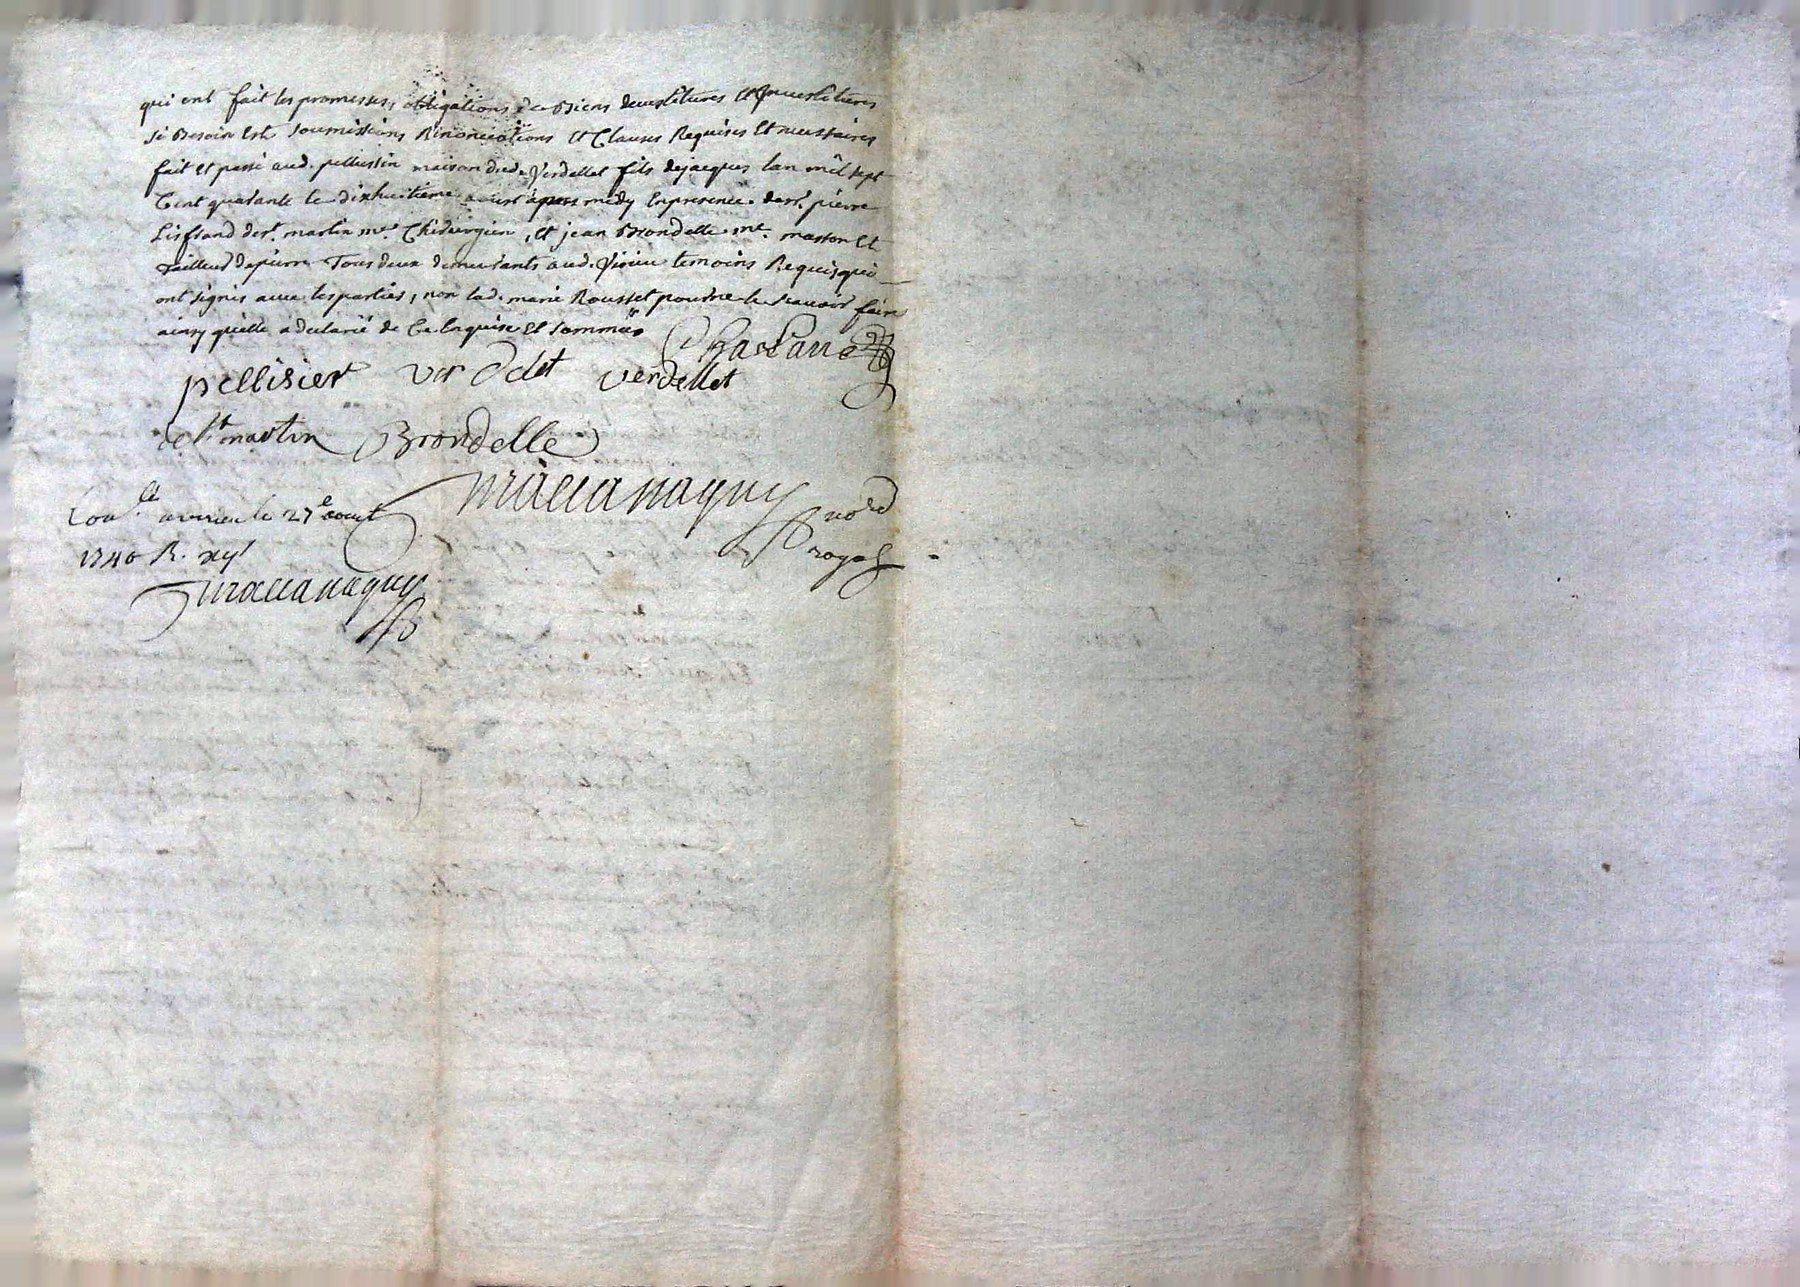 qui ont fait les promesses, obligations de Biens devestitures et Investitures
si Besoin Est soumissions Rénonciations et Clauses Requises Et necessaires
fait et passé aud. pellussin maison dud. Verdellet fils de jacques lan mil sept
Cent quarante le dixhuitieme aoust apres midy En presence de sr. pierre
Lisfrand de st. martin me. Chirurgien, et jean Brondelle me. masson Et
Tailleur de pierre Tous deux demeurants aud. Virieu temoins Requis qui
ont signés avec les parties, non lad. marie Rousset pour ne le scavoir faire
ainsy quelle a declarée de Ce Enquise Et sommée
Chastane
pellisier verdelet verdellet
de st martin Brondelle
not
royal
Con.lé a virieu le 27e aout
1740 R.